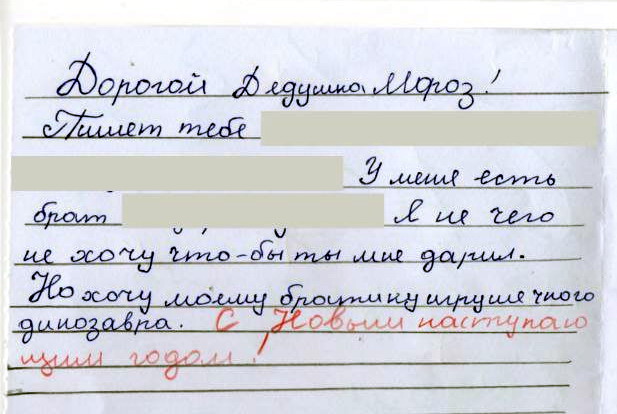 Дорогой Дедушка Мороз!
Пишет тебе
У меня есть
брат Я не чего
не хочу что-бы ты мне дарил.
Но хочу моему братику игрушечного
динозавра. С Новым наступаю
щим годом!